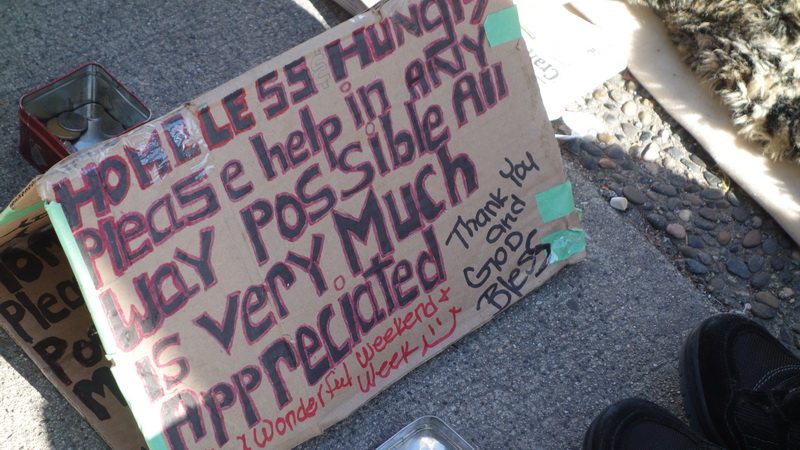 HOMELESS HUNGRY
Please help in ANY
WAY POSSible All
is very Much
Appreciated
Thank You
and
GOD
Bless
Wonderful weekend &
Week